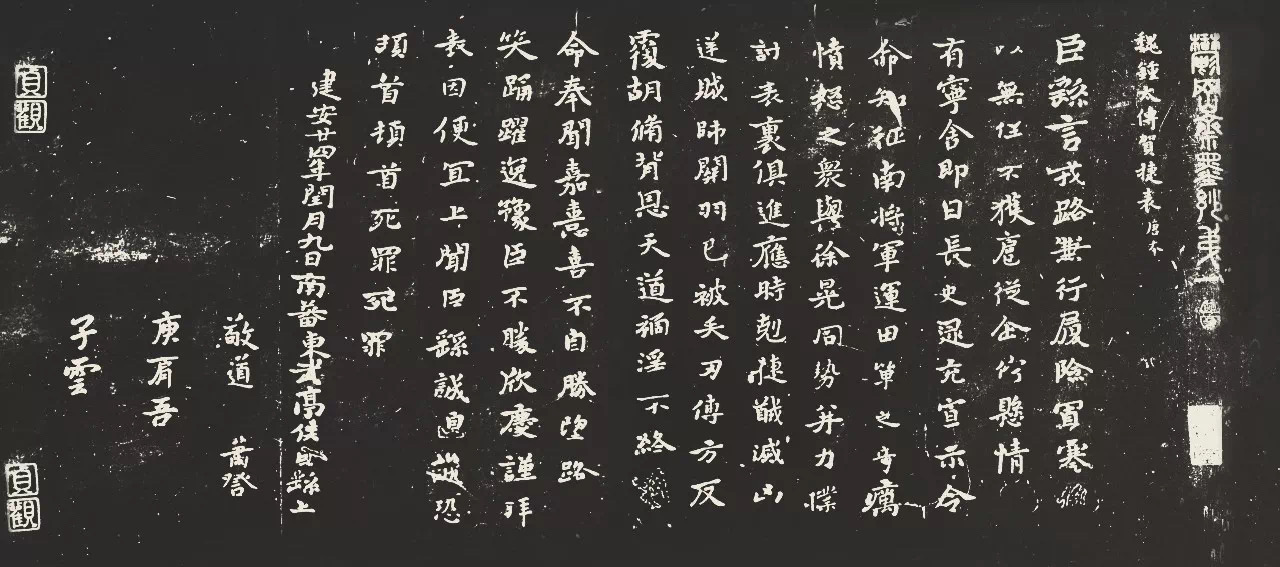 鬱岡齋墨妙第一
魏鍾太傅賀捷表唐本
臣繇言戎路兼行履險冒寒
以無任不獲扈從企佇懸情
有寧舍即日長史逯充宣示令
命知征南將軍運田單之奇癘
憤怒之衆與徐晃同勢并力撲
討表裏俱進應時剋捷馘滅凶
逆賊帥關羽已被矢刃傅方反
覆胡脩背恩天道禍淫不終
命奉聞嘉憙喜不自勝望路
笑踊躍逸豫臣不勝欣慶謹拜
表因便宜上聞臣繇誠惶誠恐
頓首頓首死罪死罪
建安廿四年閏月九日南蕃東武亭侯臣繇上
道 蕭
庾肩吾
子雲
貞觀
貞觀